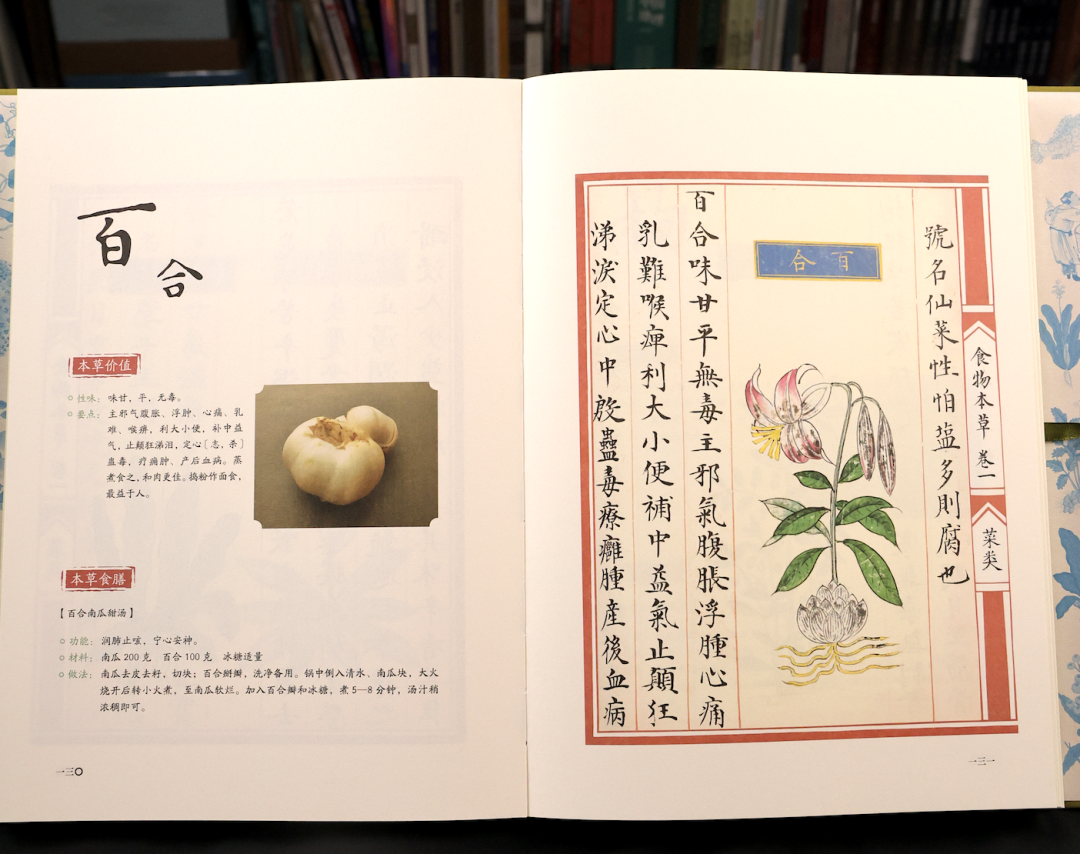 百合
本草价值
性味：味甘，平，无毒。
要点：主邪气腹胀、浮肿、心痛、乳
难、喉痹，利大小便，补中益
气，止颠狂涕泪，定心〔志，杀〕
蛊毒，疗痈肿、产后血病。蒸
煮食之，和肉更佳。捣粉作面食，
最益于人。
本草食膳
【百合南瓜甜汤】
功能：润肺止咳，宁心安神。
材料：南瓜200克 百合100克 冰糖适量
做法：南瓜去皮去籽，切块；百合掰瓣，洗净备用。锅中倒入清水、南瓜块，大火
烧开后转小火煮，至南瓜软烂。加入百合瓣和冰糖，煮5—8分钟，汤汁稍
浓稠即可。
一三〇
食物本草 卷一
菜类
號名仙菜性怕盐多則腐也
百合
百合味甘平無毒主邪氣腹脹浮腫心痛
乳難喉痺利大小便補中益氣止顛狂
涕淚定心中殺蠱毒療癰腫産後血病
一三一